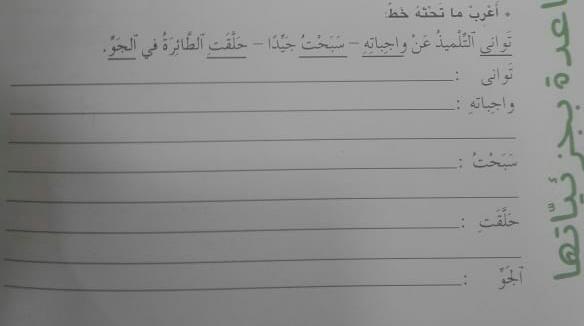 • أعْرِبْ ما تحْتَهُ خَطّ:
تَوانى التِّلْميذُ عَنْ واجِباتِهِ – سَبَحْتُ جَيِّدًا – حَلَّقَتِ الطّائِرَةُ في الجَوِّ.
تَوانى :
واجباتِهِ :
سَبَحْتُ :
حَلَّقَتِ :
الجَوِّ :
بجزئيّاتها